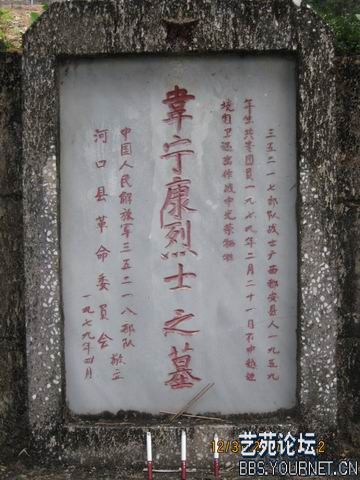 三五二一七部队战士广西都安县人一九五九
年生共青团员一九七九年二月二十一日在中越边
境自卫还击作战中光荣牺牲
韋宁康烈士之墓
中国人民解放军三五二一八部队
河口县革命委员会
敬立
一九七九年四月
艺苑论坛
BBS.YOURNET.CN